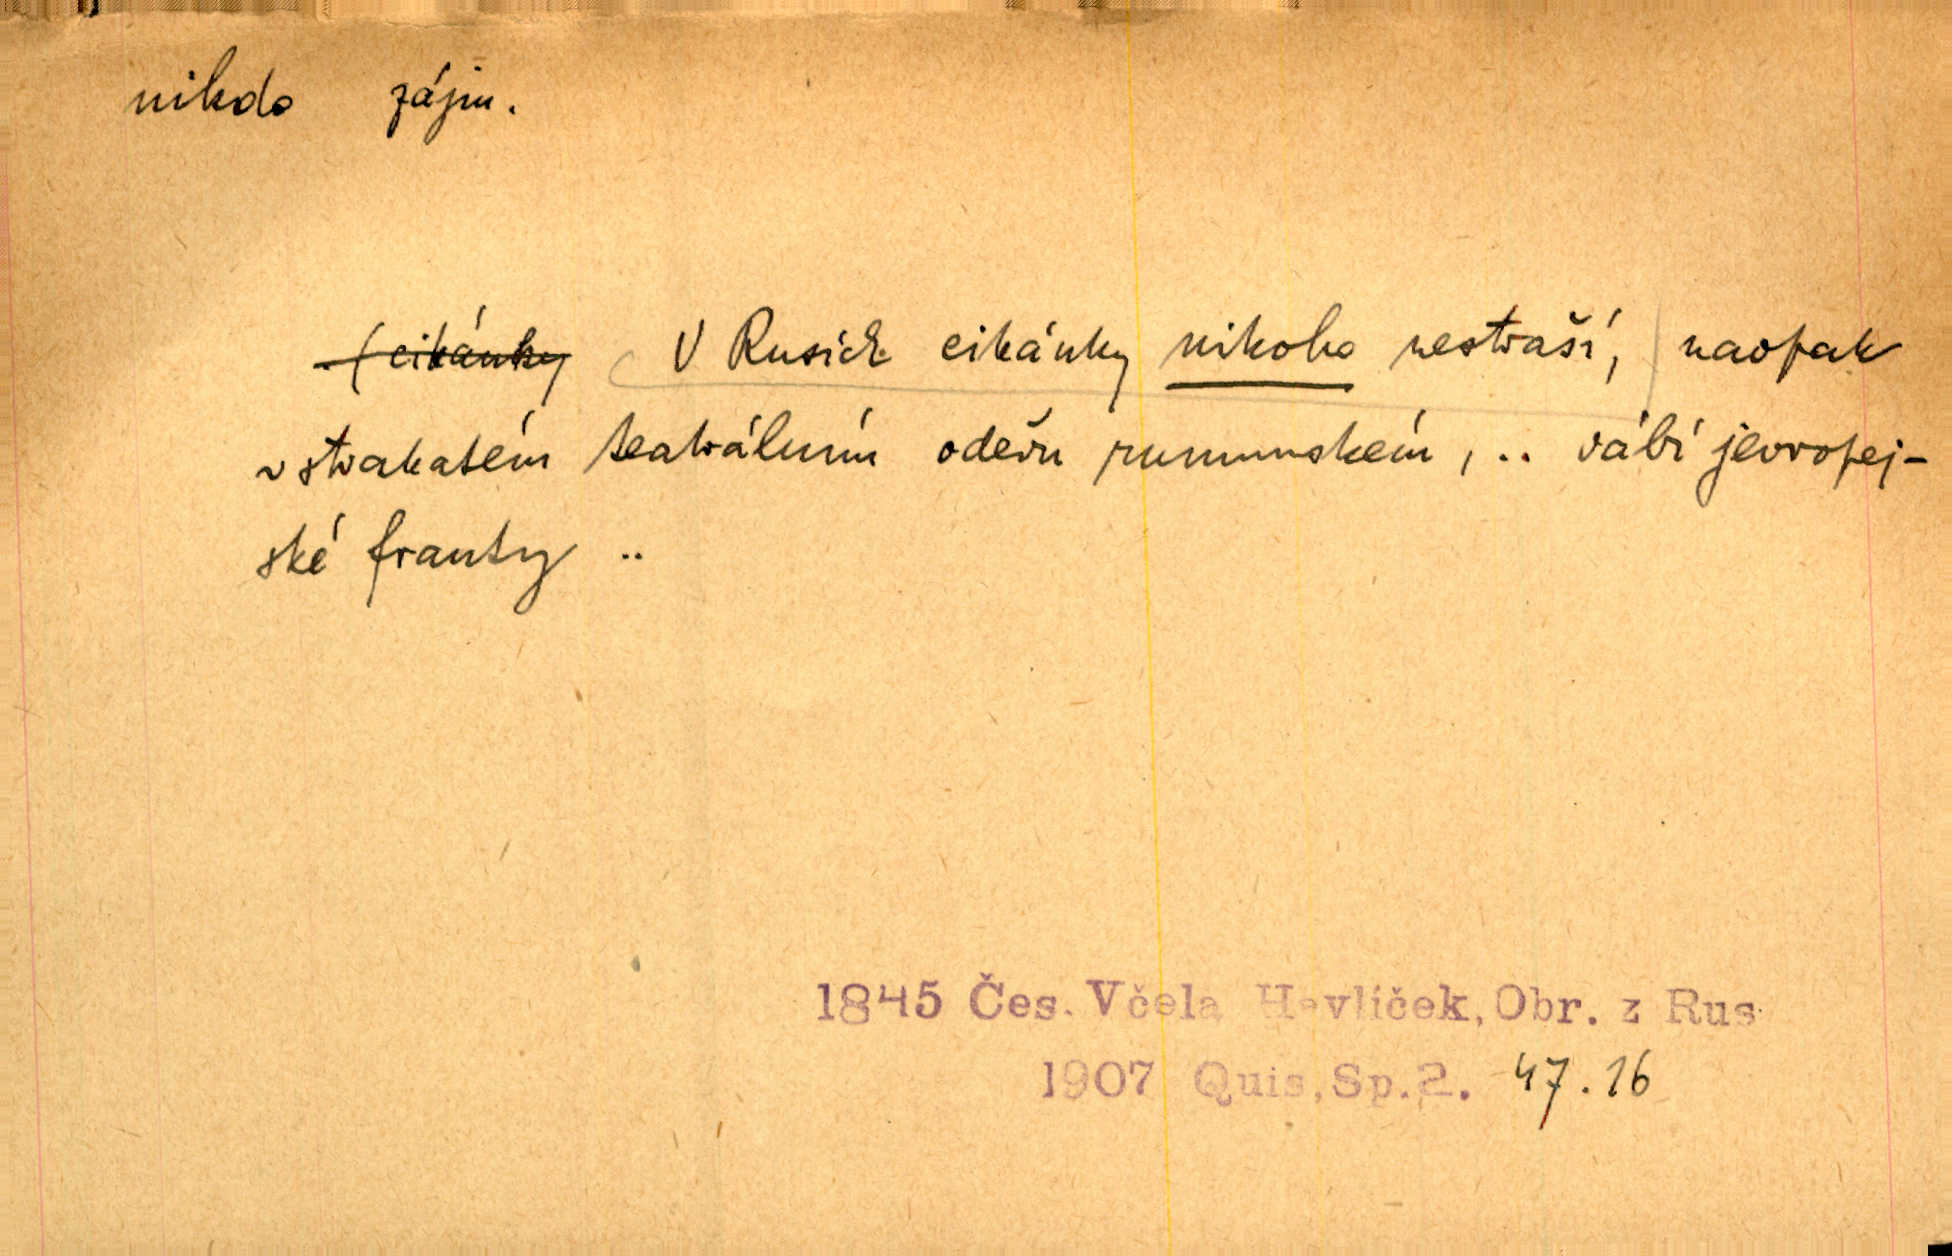 nikdo zájm.
(cikánky V Rusích cikánky nikoho nestraší, naopak
v strakatém teatrálním oděvu rumunském, .. vábí jevropej-
ské franty ..
1845 Čes. Včela Havlíček, Obr. z Rus
1907 Quis, Sp. 2. 47.16